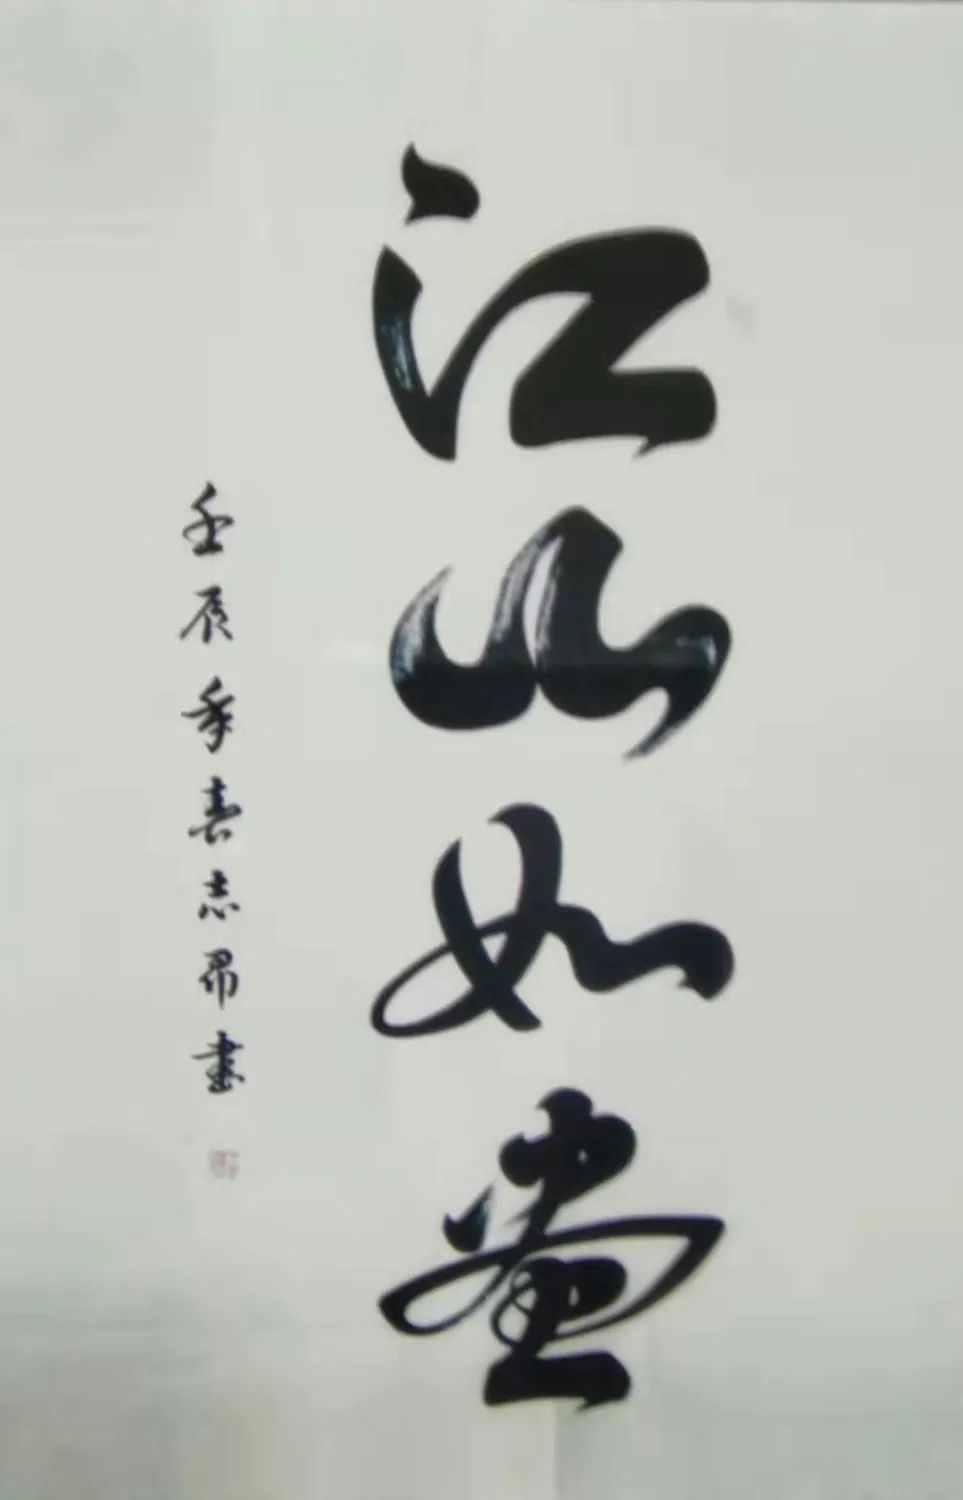 江山如画
壬辰年春志昂書